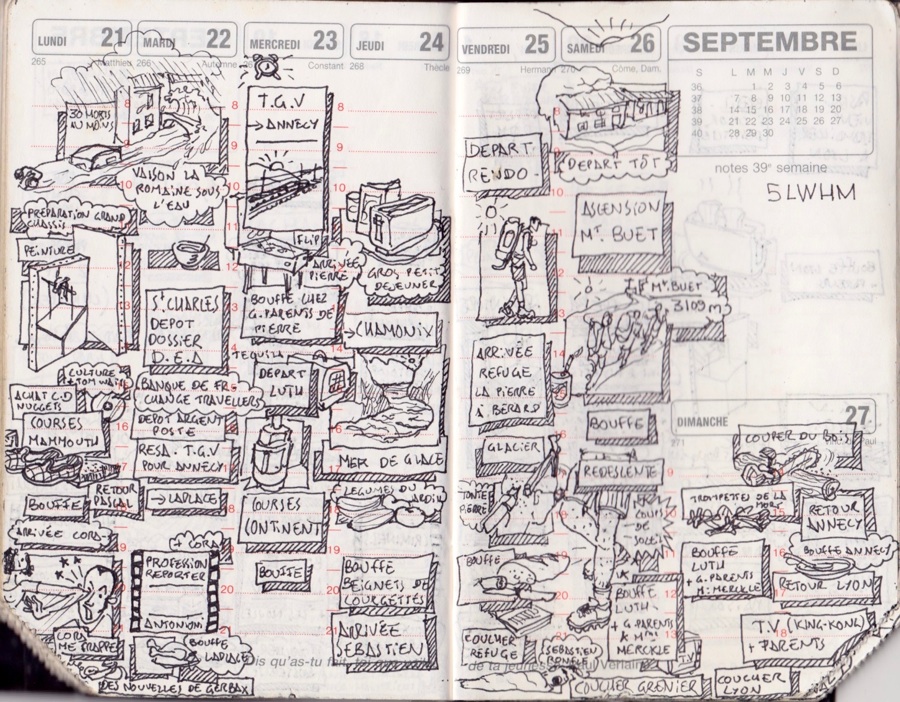 LUNDI 21
265 Matthieu
30 MORTS
AU MOINS
PRÉPARATION GRAND
CHASSIS
PEINTURE
CULTURE
+ TOM WAITS
ACHAT C.D
NUGGETS
COURSES
MAMMOUTH
BOUFFE
RETOUR
PASCAL
ARRIVÉE CORA
CORA
ME FRAPPE
DES NOUVELLES DE GERBAX
MARDI 22
266 Automne
VAISON LA
ROMAINE SOUS
L'EAU
St CHARLES
DEPOT
DOSSIER
D.E.A
BANQUE DE FR
CHANGE TRAVELLERS
DEPOT ARGENT
POSTE
RESA. T.G.V
POUR ANNECY
→ LAPLACE
+ CORA
PROFESSION
REPORTER
ANTONIONI
BOUFFE
LAPLACE
MERCREDI 23
Constant
T.G.V
→ ANNECY
FLIP
ARRIVÉE
PIERRE
BOUFFE CHEZ
G.PARENTS DE
PIERRE
TEQUILA
DEPART
LUTH
COURSES
CONTINENT
BOUFFE
JEUDI 24
268 Thècle
GROS PETIT
DEJEUNER
→ CHAMONIX
MER DE GLACE
LEGUMES DU
JARDIN
BOUFFE
BEIGNETS DE
COURGETTES
ARRIVÉE
SEBASTIEN
VENDREDI 25
269 Hermann
DEPART
RENDO
ARRIVÉE
REFUGE
LA PIERRE
A BERARD
GLACIER
TONTE
PIERRE
BOUFFE
COUCHER
REFUGE
SAMEDI 26
270 Côme, Dam.
DEPART TÔT
ASCENSION
Mt. BUET
Mt. BUET
3109 m
BOUFFE
REDESCENTE
COUPS
DE
SOLEIL
BOUFFE
LUTH
+ G PARENTS
& Mme
MERCKLE
SEBASTIEN
RONFLE
COUCHER GRENIER
SEPTEMBRE
S L M M J V S D
36 1 2 3 4 5 6
37 7 8 9 10 11 12 13
38 14 15 16 17 18 19 20
39 21 22 23 24 25 26 27
40 28 29 30
notes 39e semaine
5LWHM
DIMANCHE 27
271
COUPER DU BOIS
TROMPETTES DE LA
MORT
RETOUR
ANNECY
BOUFFE
LUTH
+ G.PARENTS
M. MERCKLE
BOUFFE ANNECY
RETOUR LYON
T.V (KING-KONG)
+ PARENTS
COUCHER
LYON
is qu'as-tu fait, de ta jeunesse Verlaine